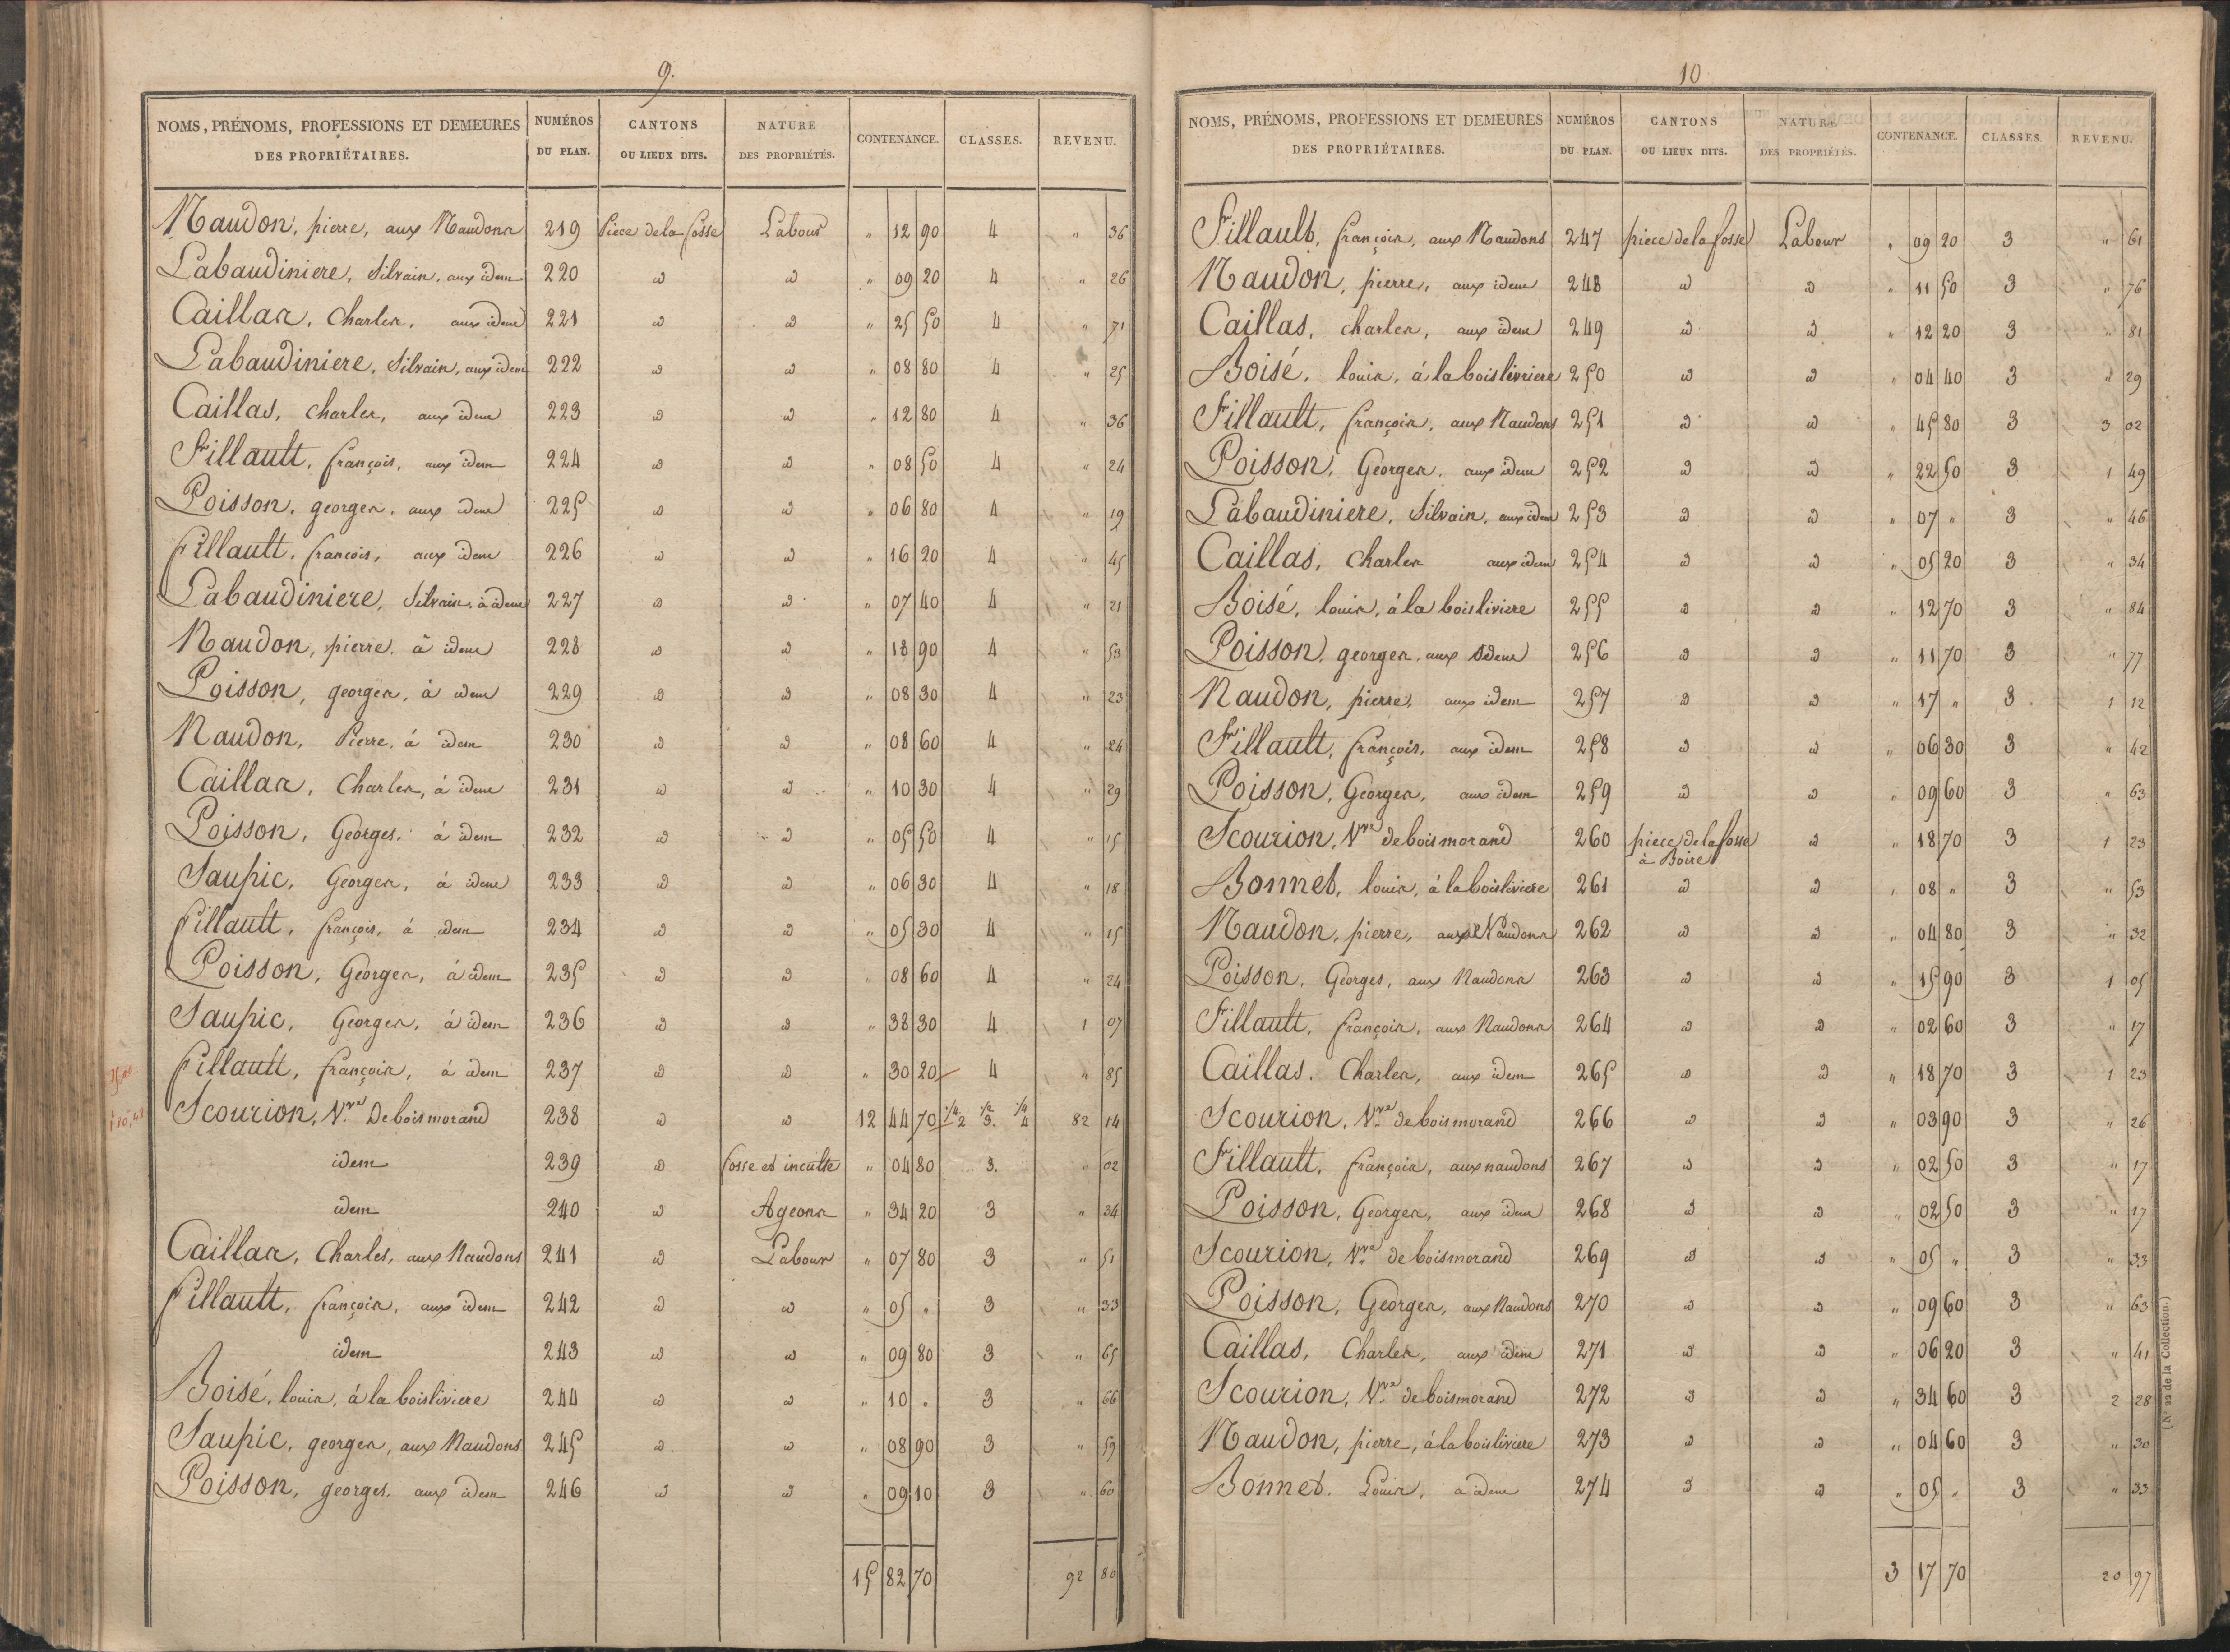 9.
NOMS, PRÉNOMS, PROFESSIONS ET DEMEURES DES PROPRIÉTAIRES. NUMÉROS DU PLAN. CANTONS OU LIEUX DITS. NATURE DES PROPRIÉTÉS. CONTENANCE. CLASSES. REVENU.
Naudon, pierre, aux Naudons 219 Piece de la fosse Labour " 12 90 4 " 36
Labaudiniere, Silvain, aux idem 220 id id " 09 20 4 " 26
Caillas, Charles, aux idem 221 id id " 25 50 4 " 71
Labaudiniere, Silvain, aux idem 222 id id " 08 80 4 " 25
Caillas, charles, aux idem 223 id id " 12 80 4 " 36
Fillault, françois, aux idem 224 id id " 08 50 4 " 24
Poisson, georges, aux idem 225 id id " 06 80 4 " 19
fillault, francois, aux idem 226 id id " 16 20 4 " 45
Labaudiniere, Silvain, à idem 227 id id " 07 40 4 " 21
Naudon, pierre, à idem 228 id id " 18 90 4 " 53
Poisson, georges, à idem 229 id id " 08 30 4 " 23
Naudon, Pierre, à idem 230 id id " 08 60 4 " 24
Caillas, Charles, à idem 231 id id " 10 30 4 " 29
Poisson, Georges, à idem 232 id id " 05 50 4 " 15
Saupic, Georges, à idem 233 id id " 06 30 4 " 18
fillault, françois, à idem 234 id id " 05 30 4 " 15
Poisson, Georges, à idem 235 id id " 08 60 4 " 24
Saupic, Georges, à idem 236 id id " 38 30 4 1 07
fillault, françois, à idem 237 id id " 30 20 4 " 85
Scourion, Vve De boismorand 238 id id 12 44 70 1/4 2 1/2 3. 1/4 4 82 14
idem 239 id fosse et inculte " 04 80 3. " 02
idem 240 id Ageons " 34 20 3 " 34
Caillas, Charles, aux Naudons 241 id Labour " 07 80 3 " 51
fillault, françois, aux idem 242 id id " 05 " 3 " 33
idem 243 id id " 09 80 3 " 65
Boisé, louis, à la boisliviere 244 id id " 10 " 3 " 66
Saupic, georges, aux Naudons 245 id id " 08 90 3 " 59
Poisson, georges, aux idem 246 id id " 09 10 3 " 60
15 82 70 92 80
10
NOMS, PRÉNOMS, PROFESSIONS ET DEMEURES DES PROPRIÉTAIRES. NUMÉROS DU PLAN. CANTONS OU LIEUX DITS. NATURE DES PROPRIÉTÉS. CONTENANCE. CLASSES. REVENU.
Fillault, françois, aux Naudons 247 piece de la fosse Labour " 09 20 3 " 61
Naudon, pierre, aux idem 248 id id " 11 50 3 " 76
Caillas, charles, aux idem 249 id id " 12 20 3 " 81
Boisé, louis, à la boisliviere 250 id id " 04 40 3 " 29
Fillault, françois, aux Naudons 251 id id " 45 80 3 3 02
Poisson, Georges, aux idem 252 id id " 22 50 3 1 49
Labaudiniere, Silvain, aux idem 253 id id " 07 " 3 " 46
Caillas, Charles aux idem 254 id id " 05 20 3 " 34
Boisé, louis, à la boisliviere 255 id id " 12 70 3 " 84
Poisson, georges, aux idem 256 id id " 11 70 3 " 77
Naudon, pierre, aux idem 257 id id " 17 " 3 1 12
Fillault, françois, aux idem 258 id id " 06 30 3 " 42
Poisson, Georges, aux idem 259 id id " 09 60 3 " 63
Scourion, Vve de boismorand 260 piece de la fosse à Boire id " 18 70 3 1 23
Bonnet, louis, à la boisliviere 261 id id " 08 " 3 " 53
Naudon, pierre, aux Naudons 262 id id " 04 80 3 " 32
Poisson, Georges, aux Naudons 263 id id " 15 90 3 1 05
Fillault, françois, aux Naudons 264 id id " 02 60 3 " 17
Caillas, Charles, aux idem 265 id id " 18 70 3 1 23
Scourion, Vve de boismorand 266 id id " 03 90 3 " 26
Fillault, françois, aux naudons 267 id id " 02 50 3 " 17
Poisson, Georges, aux idem 268 id id " 02 50 3 " 17
Scourion, Vve de boismorand 269 id id " 05 " 3 " 33
Poisson, Georges, aux Naudons 270 id id " 09 60 3 " 63
Caillas, Charles, aux idem 271 id id " 06 20 3 " 41
Scourion, Vve de boismorand 272 id id " 34 60 3 2 28
Naudon, pierre, à la boisliviere 273 id id " 04 60 3 " 30
Bonnet. Louis, à idem 274 id id " 05 " 3 " 33
3 17 70 20 97
(N° 22 de la Collection.)